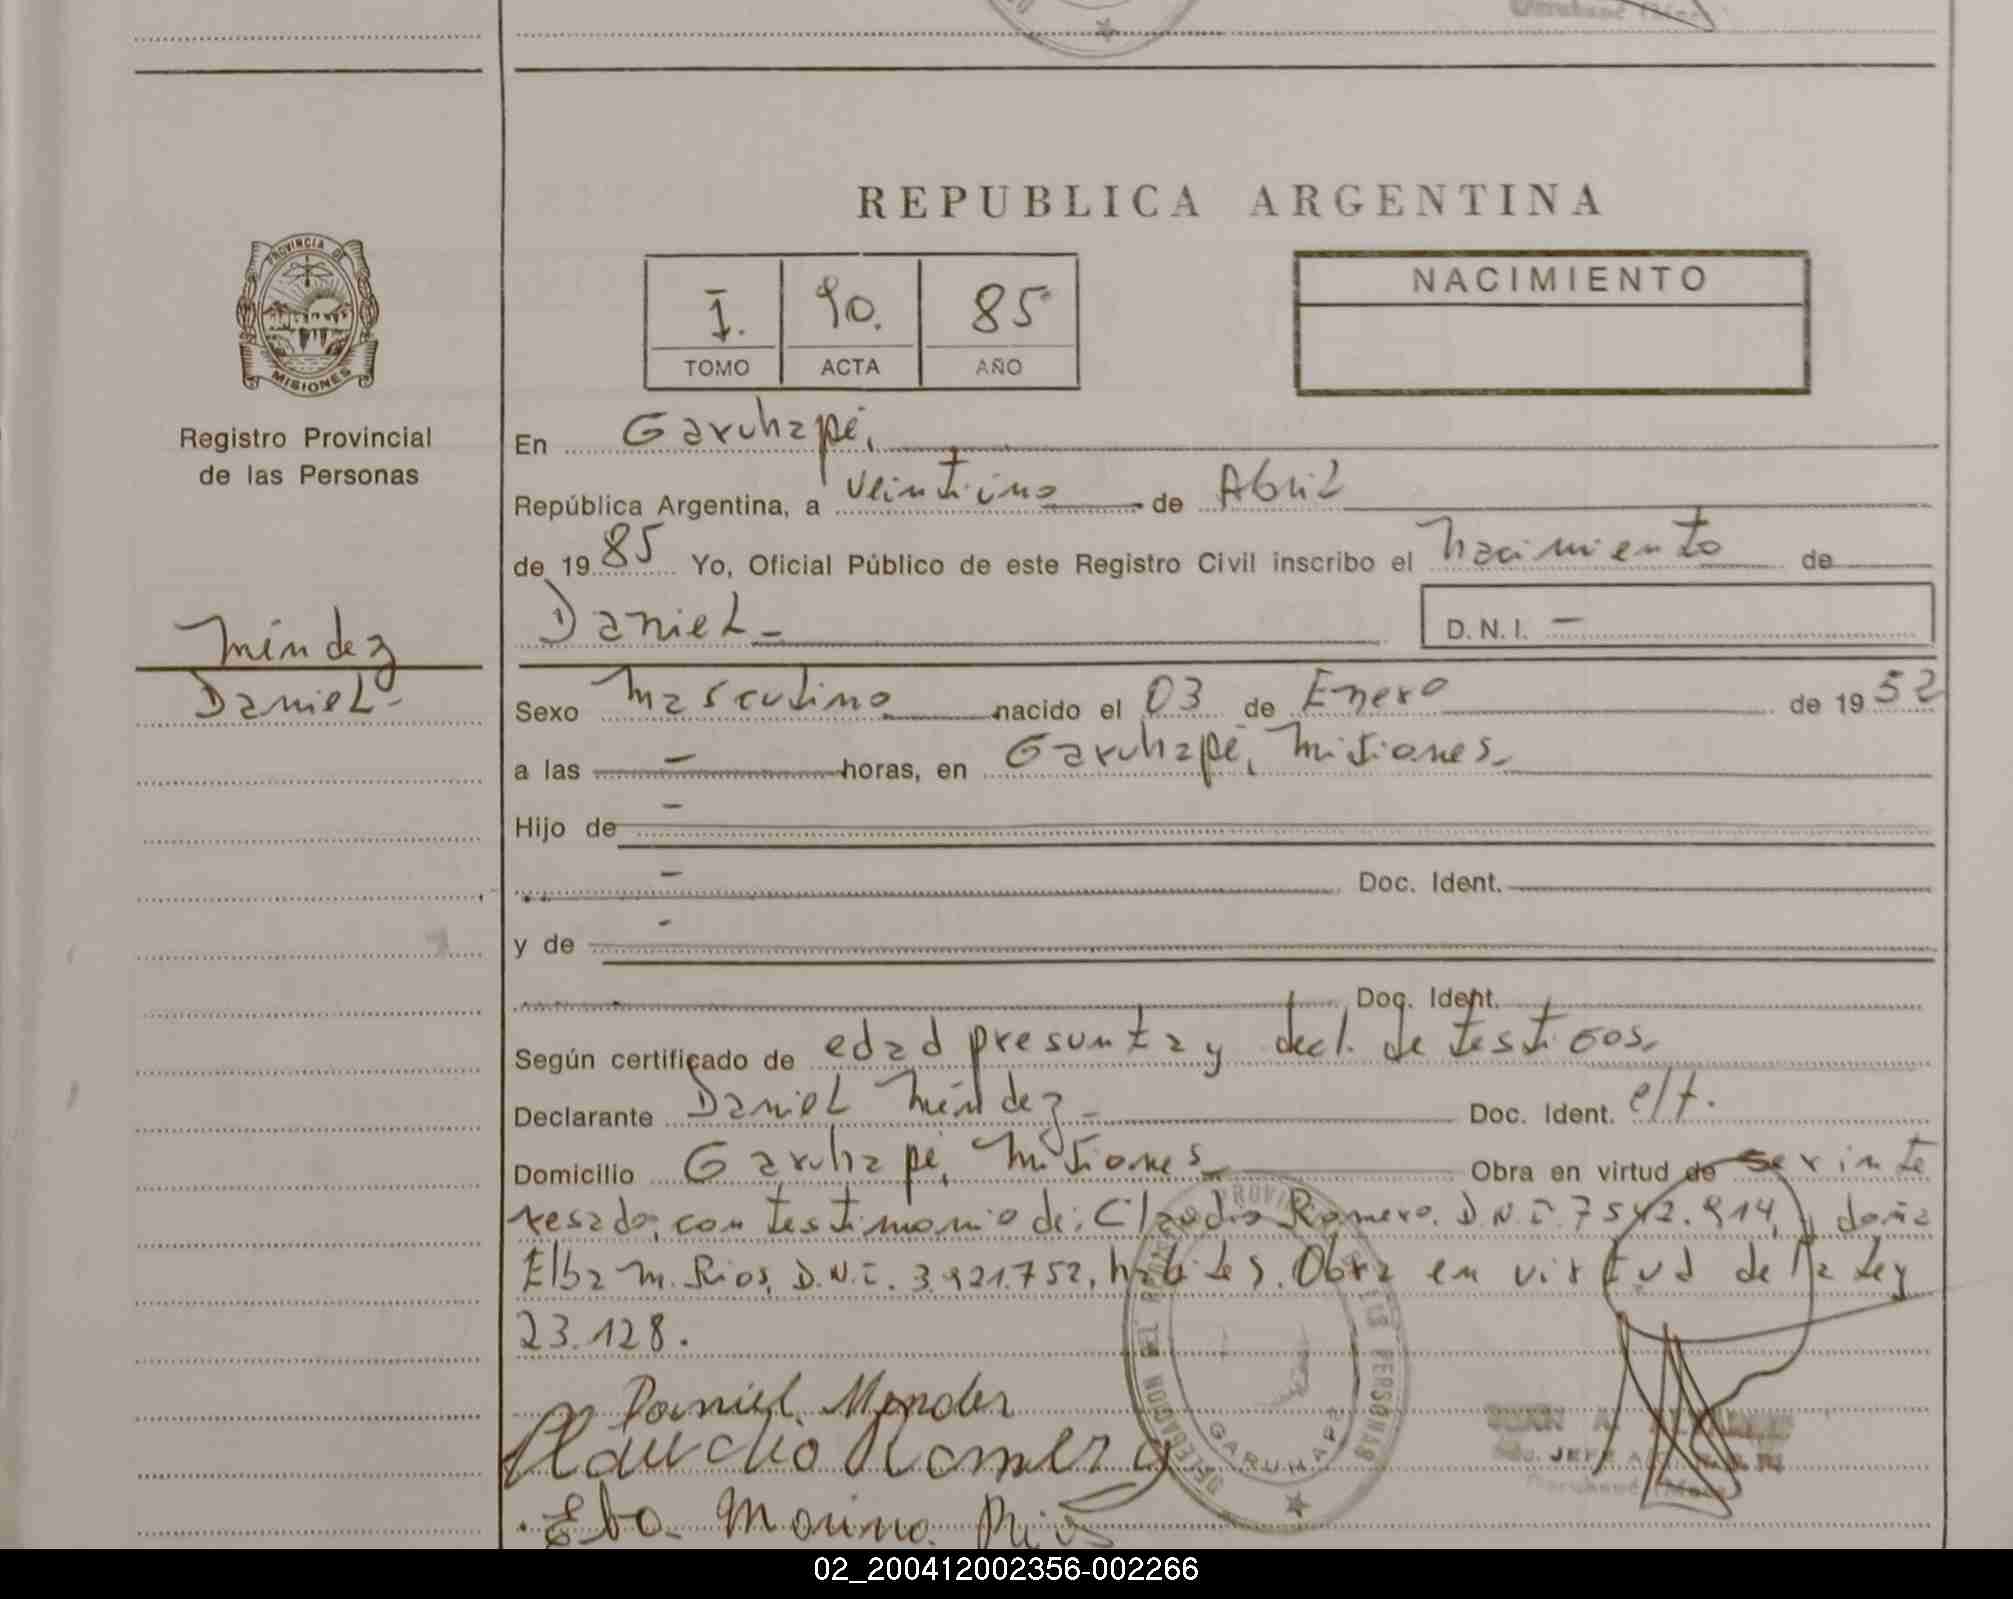 REPUBLICA ARGENTINA
PROVINCIA DE
MISIONES
Registro Provincial
de las Personas
Méndez
Daniel-
I. 90. 85
TOMO ACTA AÑO
NACIMIENTO
En Garuhapé,
República Argentina, a veintiuno de Abril
de 1985 Yo, Oficial Público de este Registro Civil inscribo el nacimiento de
Daniel- D.N.I. -
Sexo masculino nacido el 03 de Enero de 1952
a las - horas, en Garuhapé, Misiones.
Hijo de -
- Doc. Ident.
y de -
Doc. Ident.
Según certificado de edad presunta y decl. de testigos.
Declarante Daniel Méndez- Doc. Ident. e/t.
Domicilio Garuhapé, Misiones Obra en virtud de ser inte
resado, con testimonio de: Claudio Romero. D.N.I. 7542.914, y doña
Elba M. Rios, D.N.I. 3.921.752, hábiles. Obra en virtud de la Ley
23.128.
Daniel Mendez
Claudio Romero
Elba Marina Rios
GARUHAPE
02_200412002356-002266